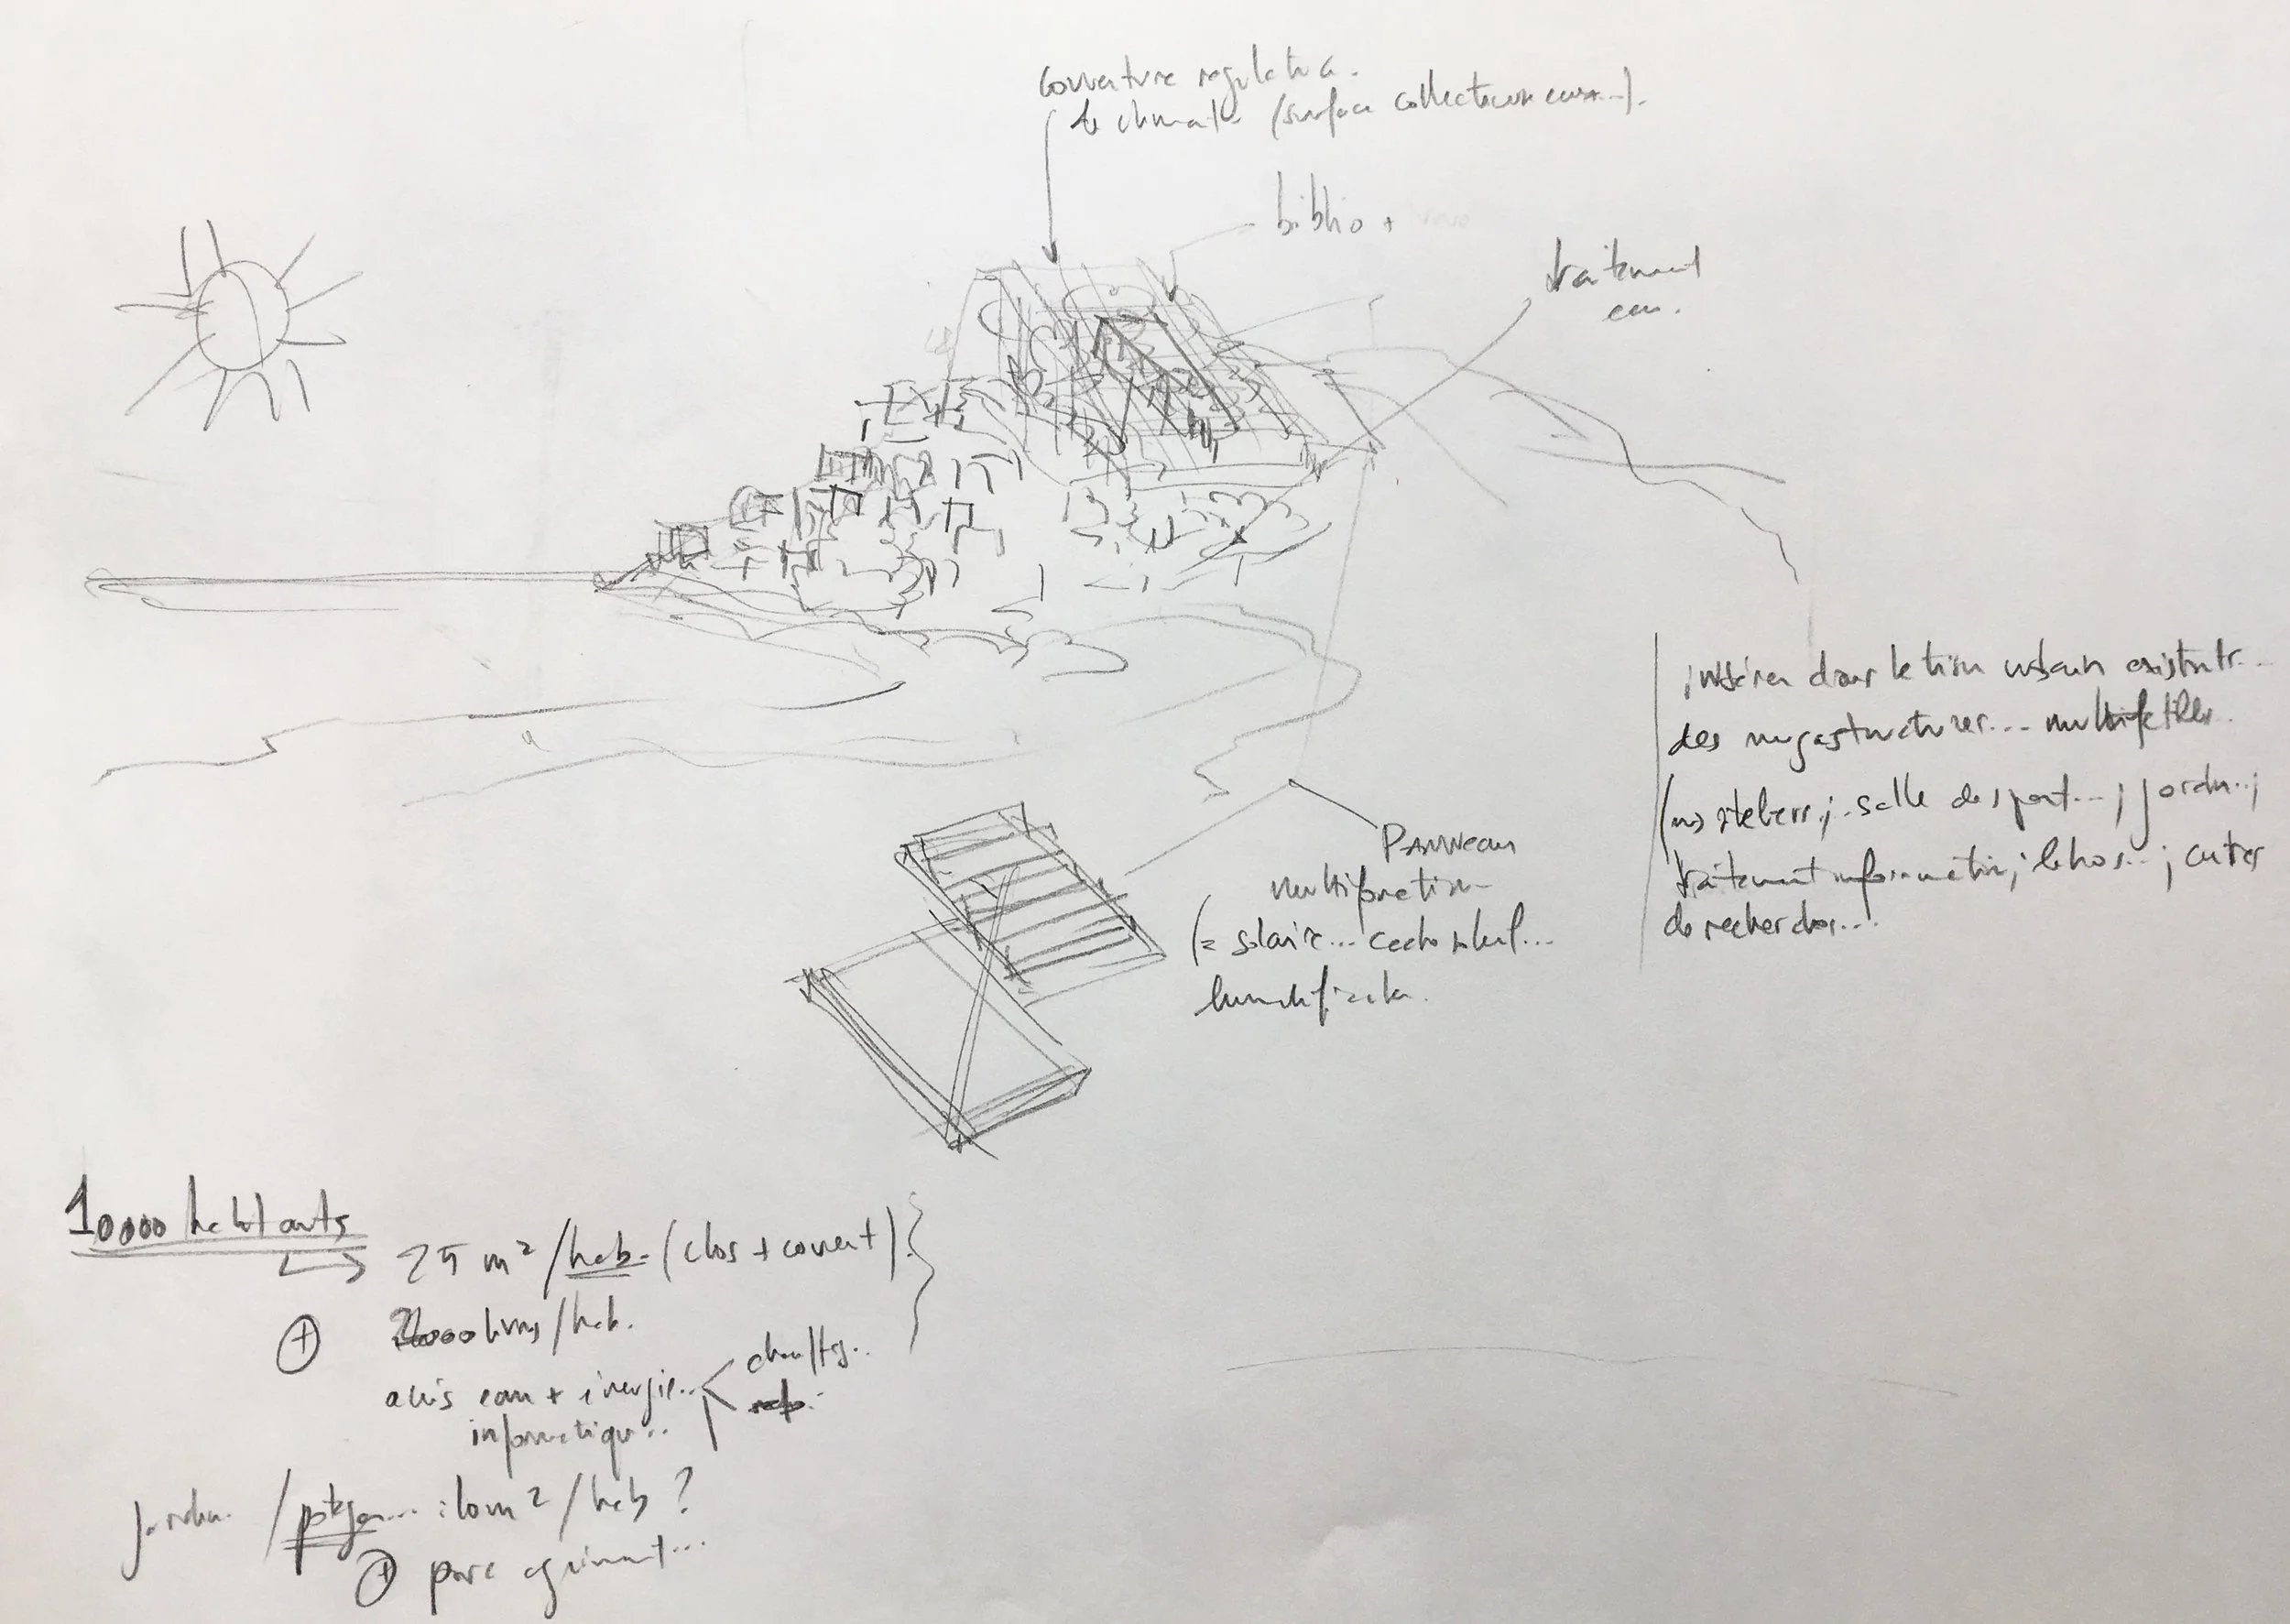 couverture regulatrice
de climat (surface collecteur eau...).
biblio +
traitement
eau.
insérer dans le tissu urbain existant..
des megastructures... multifctlles.
ateliers; salle de sport...; jardin..;
traitement information; labos...; cutes
de recherches...
PANNeau
multifonction
(= solaire...
10000 habitants
25 m² / hab. (clos + couvert)
+ livres/hab.
accès eau + énergie.. chauffage..
informatique..
Jardin. / potager... : 10m² / hab ?
+ parc agrément...